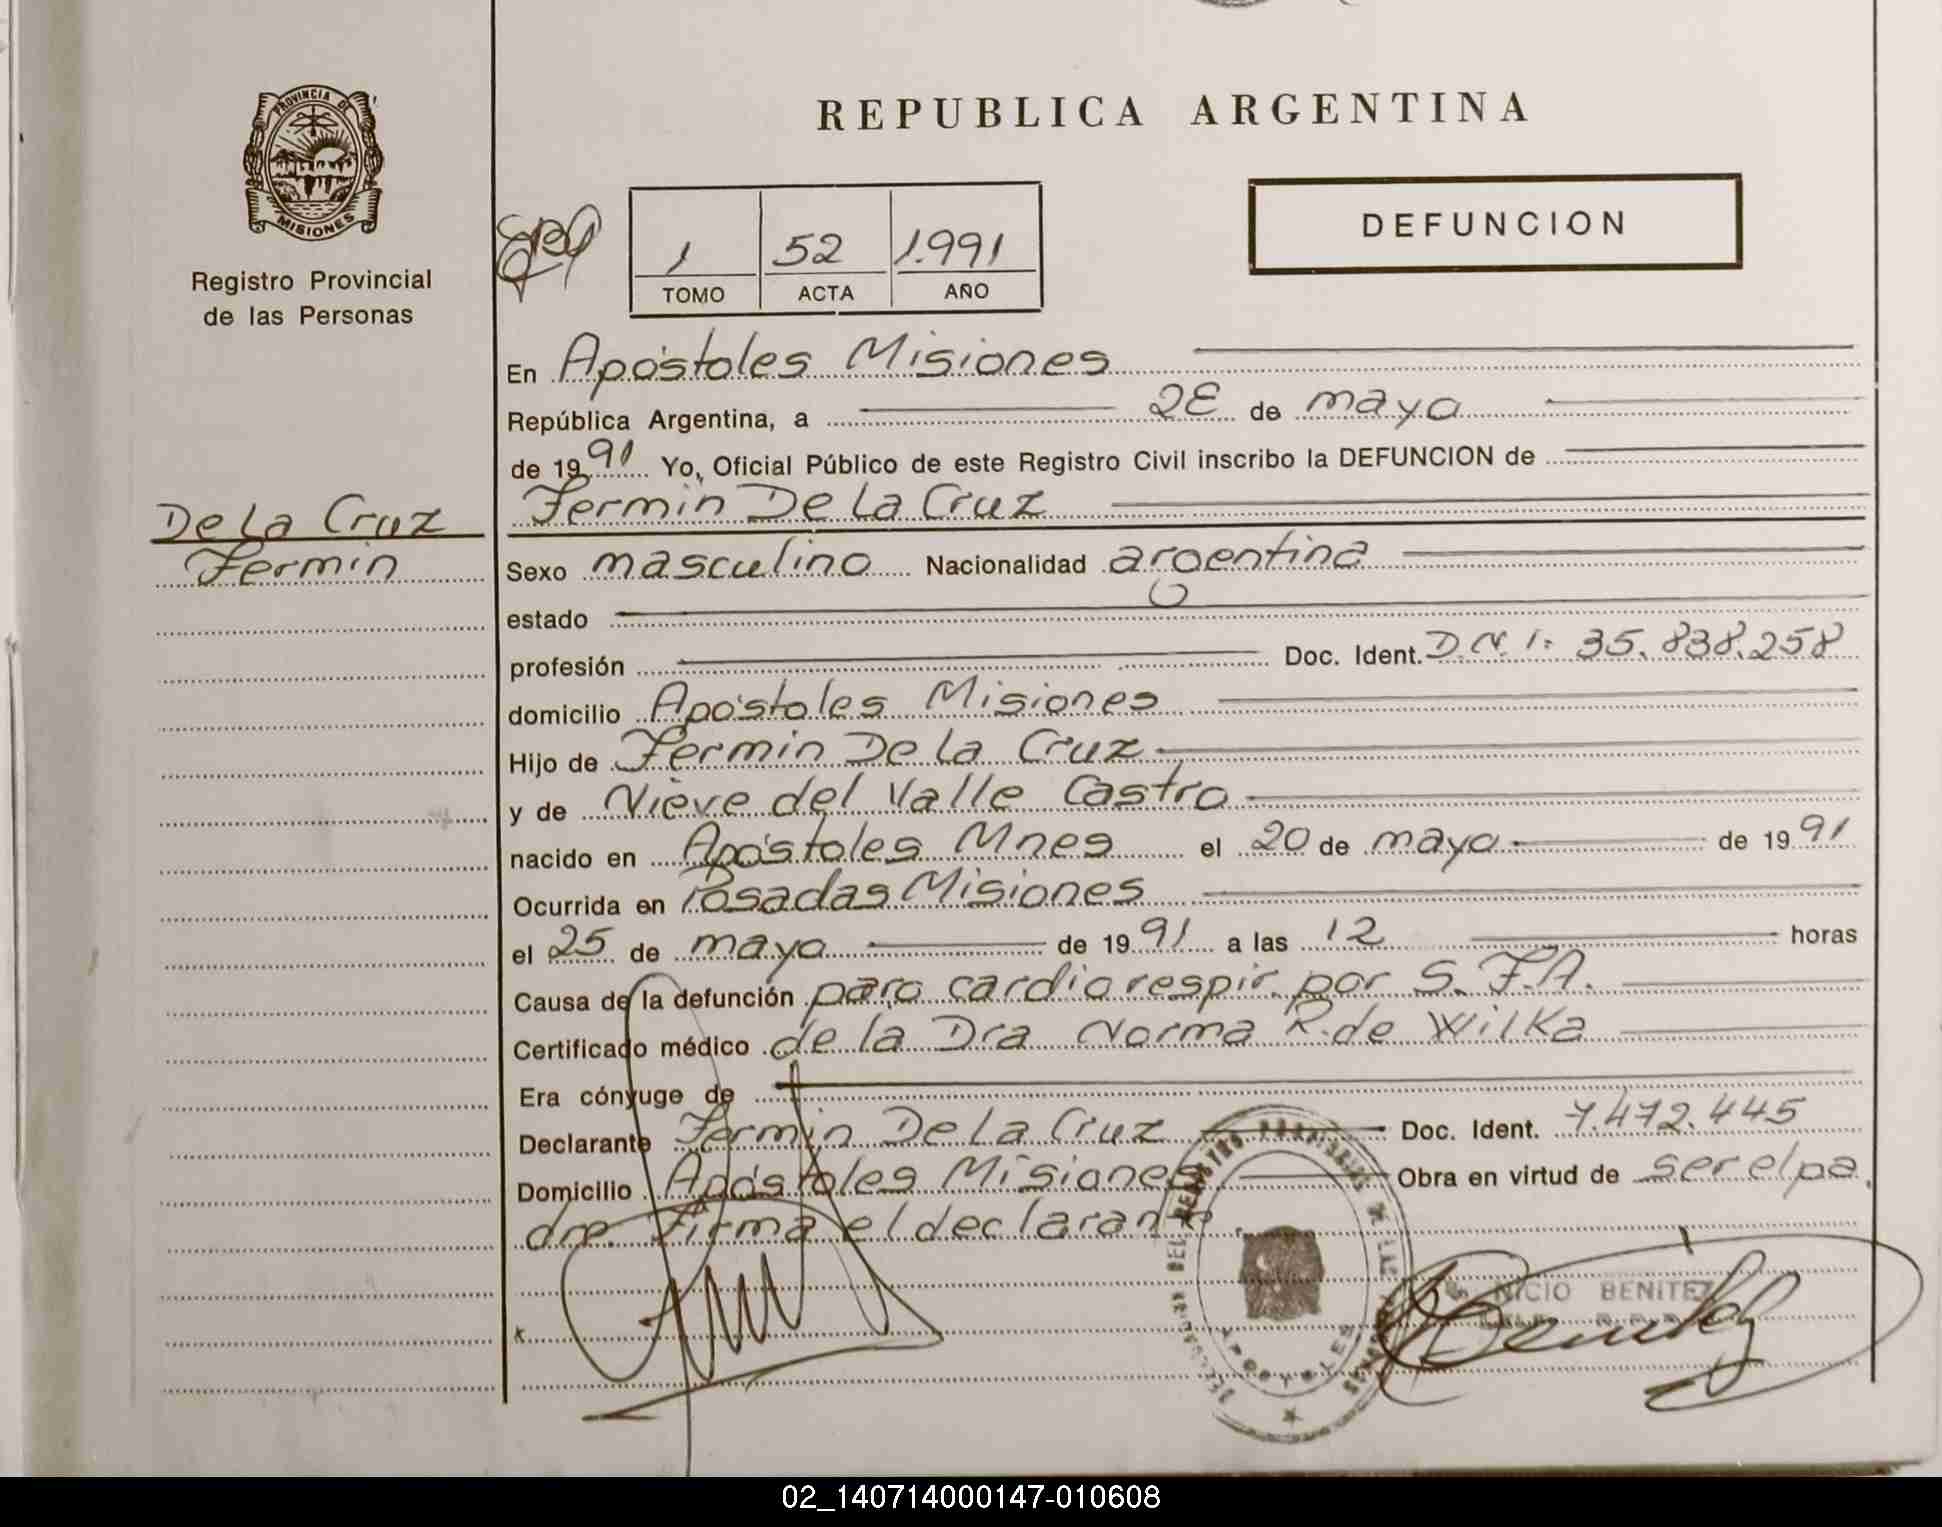 PROVINCIA DE
MISIONES
Registro Provincial
de las Personas
De La Cruz
Fermin
REPUBLICA ARGENTINA
1 52 1.991
TOMO ACTA AÑO
DEFUNCION
En Apóstoles Misiones
República Argentina, a 28 de mayo
de 1991 Yo, Oficial Público de este Registro Civil inscribo la DEFUNCION de
Fermin De La Cruz
Sexo masculino Nacionalidad argentina
estado
profesión Doc. Ident. D.N.I: 35.838.258
domicilio Apóstoles Misiones
Hijo de Fermin De la Cruz
y de Nieve del Valle Castro
nacido en Apóstoles Mnes el 20 de mayo de 1991
Ocurrida en Posadas Misiones
el 25 de mayo de 1991 a las 12 horas
Causa de la defunción paro cardio respir. por S.F.A.
Certificado médico de la Dra Norma R. de Wilka
Era cónyuge de
Declarante Fermin De La Cruz Doc. Ident. 7.472.445
Domicilio Apóstoles Misiones Obra en virtud de ser el pa
dre. Firma el declarante.
APOSTOLES
BENITEZ
02_140714000147-010608